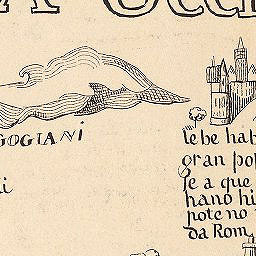 A OCC
GOGIANI
le be hab
gran pop
se a que
hano hi
pote no
da Rom